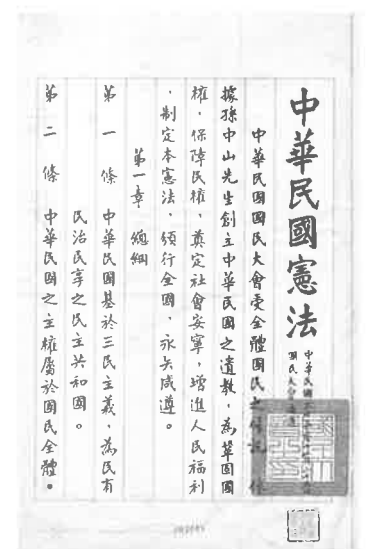 中華民國憲法
國民大會
中華民國國民大會受全體國民之付託，
據孫中山先生創立中華民國之遺教，為鞏固國
權，保障民權，奠定社會安寧，增進人民福利
，制定本憲法，頒行全國，永矢咸遵。
第一章　總綱
第一條　中華民國基於三民主義，為民有
民治民享之民主共和國。
第二條　中華民國之主權屬於國民全體。